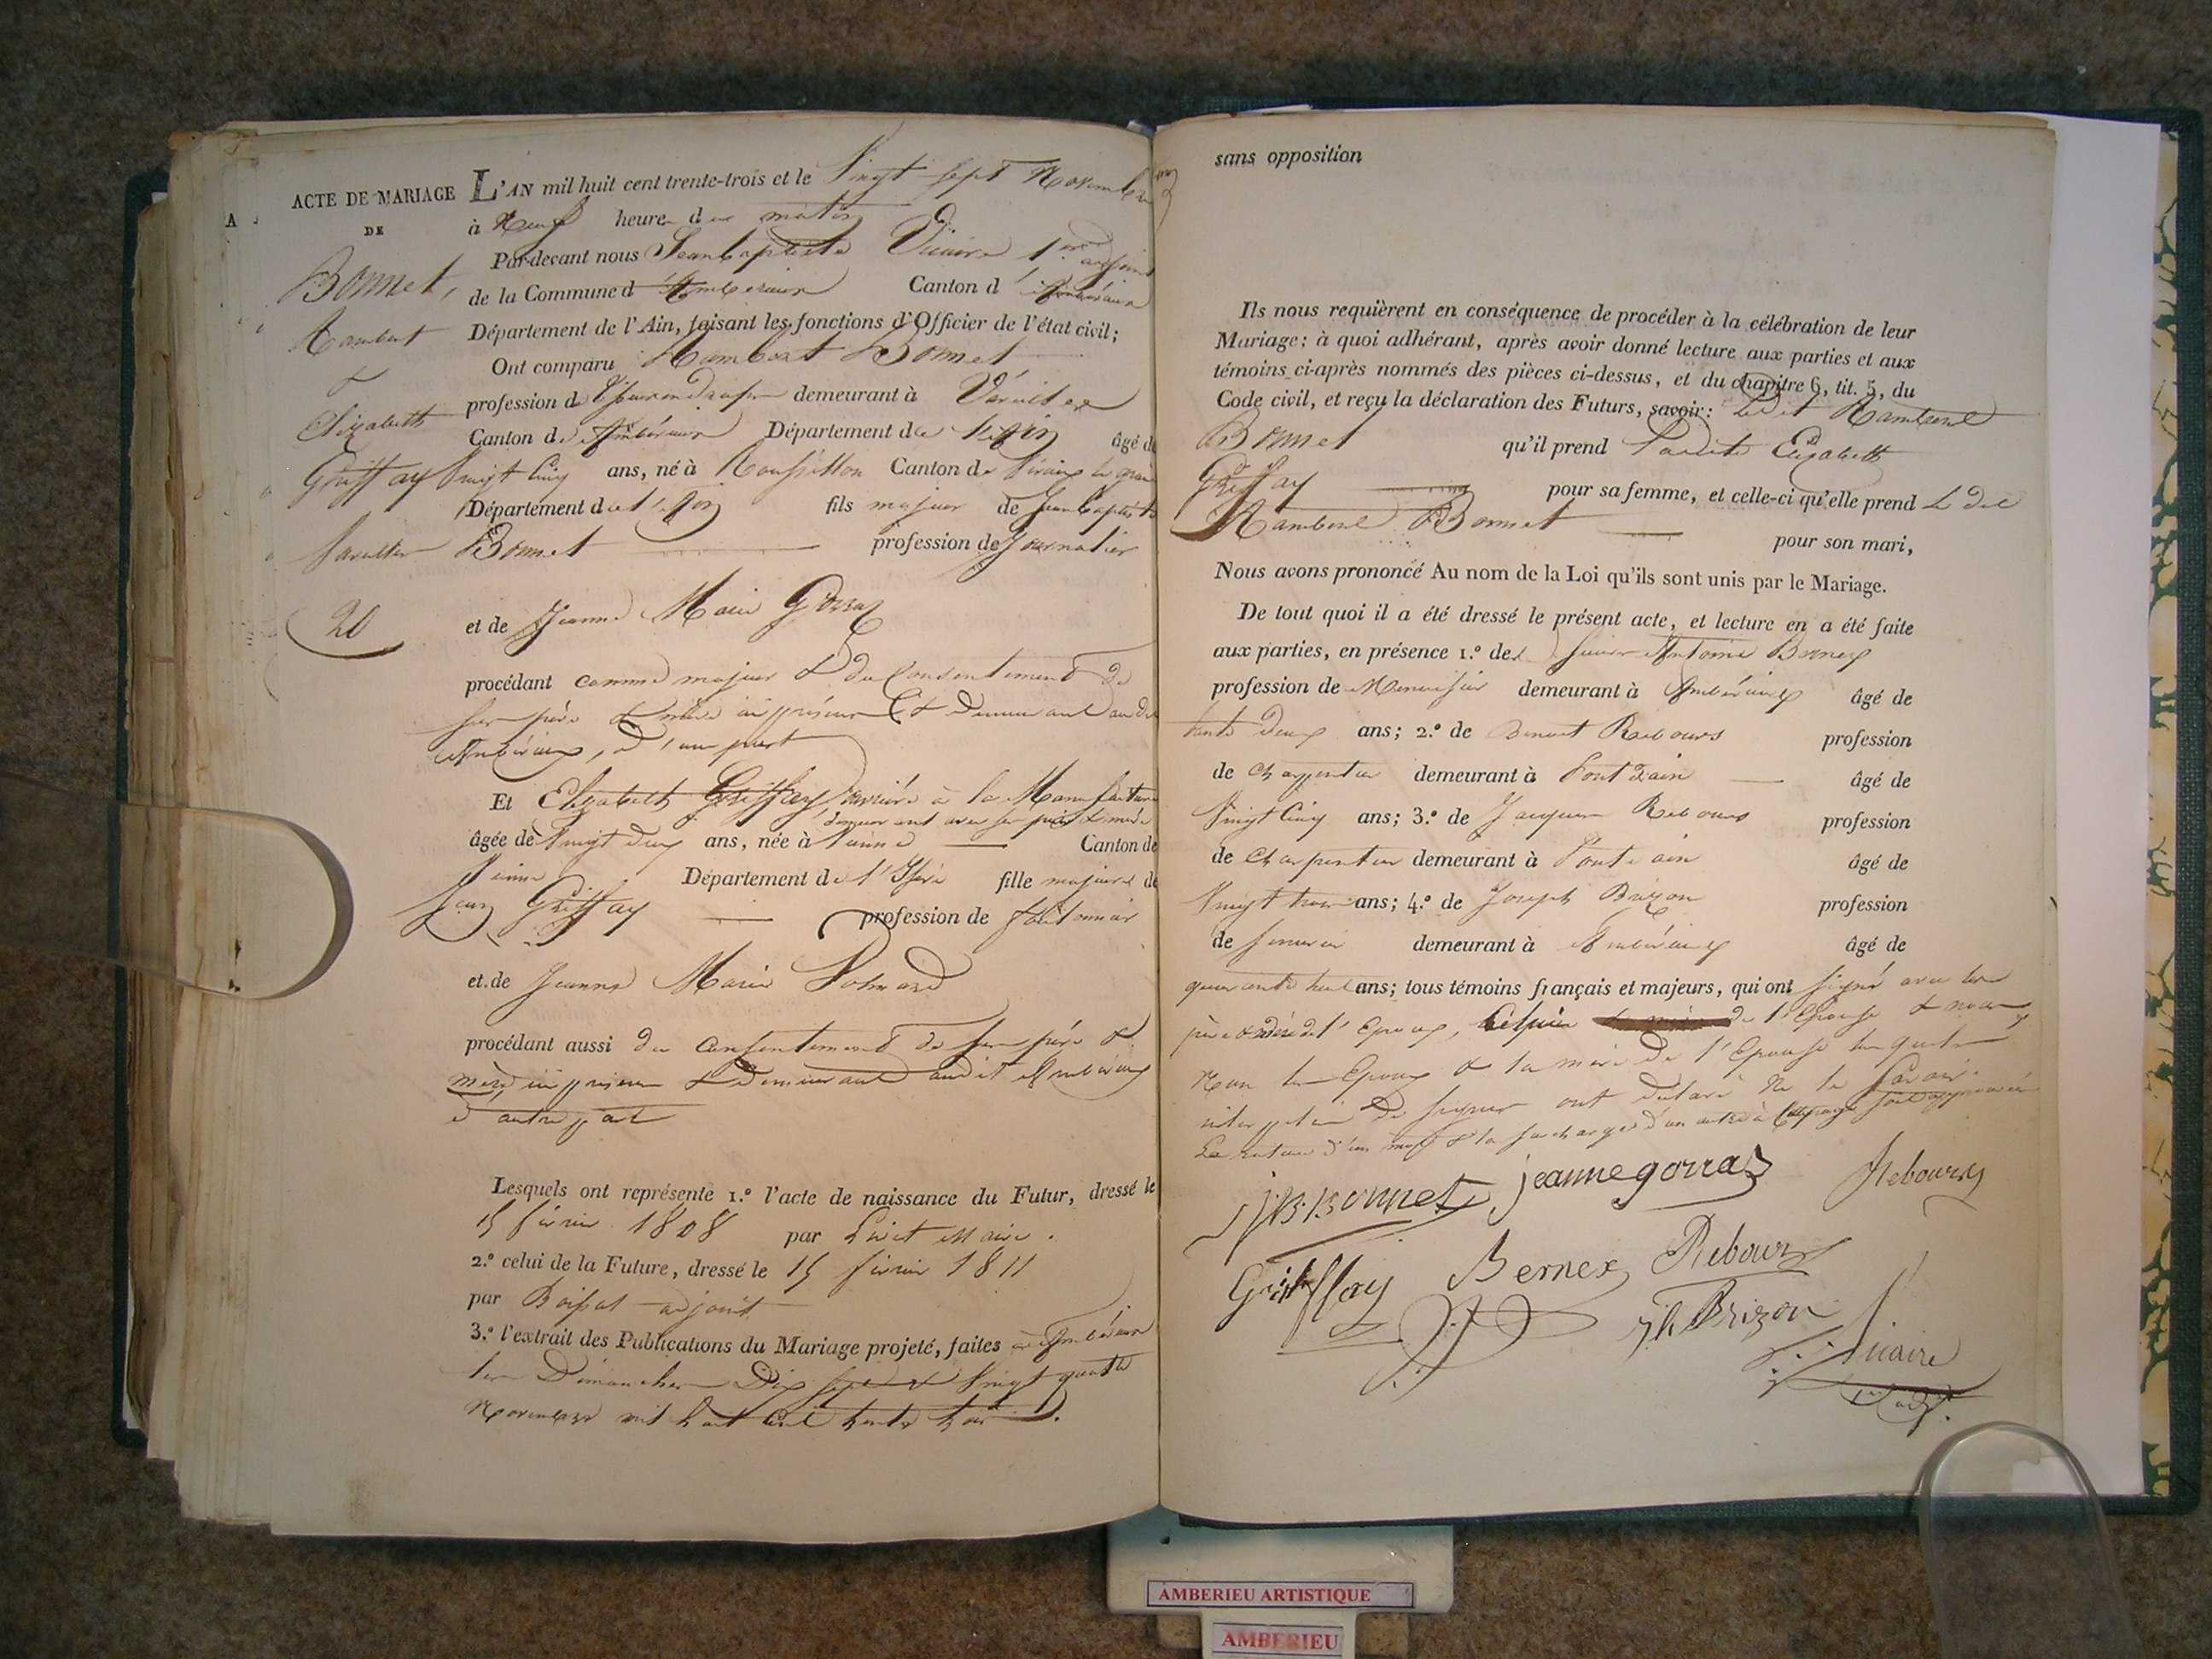 ACTE DE MARIAGE
DE
Bonnet,
Rambert
&
Elizabeth
Griffay
20
L'AN mil huit cent trente-trois et le Vingt sept Novembre
à Neuf heures du matin
Par-devant nous Jean baptiste Vicaire 1er adjoint
de la Commune d'Ambérieux Canton d'Ambérieux
Département de l'Ain, faisant les fonctions d'Officier de l'état civil;
Ont comparu Rambert Bonnet
profession de demeurant à
Canton d'Ambérieux Département de l'Ain âgé de
Vingt Cinq ans, né à Canton de
Département de l'Ain fils majeur de Jean baptiste
Bonnet profession de Journalier
et de Jeanne Marie Gorraz
procédant comme majeur & du Consentement de
ses père & mère ici présens & demeurant audit
Ambérieux, d'une part
Et Elizabeth Griffay ouvrière à la Manufacture
demeurant avec ses père & mère
âgée de Vingt deux ans, née à Vienne Canton de
Vienne Département de l'Isère fille majeure de
Jean Griffay profession de
et de Jeanne Marie
procédant aussi du Consentement de ses père &
mère, ici présens & demeurant audit Ambérieux
d'autre part
Lesquels ont représenté 1.º l'acte de naissance du Futur, dressé le
15 février 1808 par Maire.
2.º celui de la Future, dressé le 15 février 1811
par adjoint
3.º l'extrait des Publications du Mariage projeté, faites à Ambérieux
les Dimanches Dix sept & Vingt quatre
Novembre mil huit cent trente trois.
sans opposition
Ils nous requièrent en conséquence de procéder à la célébration de leur
Mariage; à quoi adhérant, après avoir donné lecture aux parties et aux
témoins ci-après nommés des pièces ci-dessus, et du chapitre 6, tit. 5, du
Code civil, et reçu la déclaration des Futurs, savoir: Ledit Rambert
Bonnet qu'il prend Ladite Elizabeth
Griffay pour sa femme, et celle-ci qu'elle prend Le dit
Rambert Bonnet pour son mari,
Nous avons prononcé Au nom de la Loi qu'ils sont unis par le Mariage.
De tout quoi il a été dressé le présent acte, et lecture en a été faite
aux parties, en présence 1.º de Antoine Bernex
profession de Menuisier demeurant à Ambérieux âgé de
trente deux ans; 2.º de Benoit Rebours profession
de Charpentier demeurant à Pont d'ain âgé de
Vingt Cinq ans; 3.º de Jacques Rebours profession
de Charpentier demeurant à Pont d'ain âgé de
Vingt trois ans; 4.º de Joseph Brizon profession
de demeurant à Ambérieux âgé de
quarante huit ans; tous témoins français et majeurs, qui ont signé avec les
père & mère de l'Epoux, de l'Epouse & nous
Non les Epoux & la mère de l'Epouse lesquels
de signer ont déclaré ne le savoir.
La rature d'un mot & la surcharge d'un autre
J.B. Bonnet jeanne gorraz Rebours
Griffay Bernex Rebour
Jh Brizon
Vicaire
1er adj.
AMBERIEU ARTISTIQUE
AMBERIEU